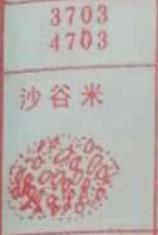 3703
4703
沙谷米